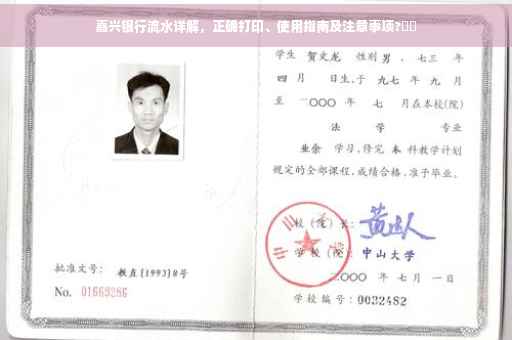 嘉兴银行流水详解，正确打印、使用指南及注意事项?
学生 贺文龙 性别 男，七三 年
四 月 日生，于 九七 年 九 月
至 二〇〇〇 年 七 月在本校(院)
法 学 专业
业余 学习，修完 本 科教学计划
规定的全部课程，成绩合格，准予毕业。
校 (院) 长：
学 校 (院)：中山大学
二〇〇〇 年 七 月 一 日
学校编号：0032482
批准文号：教直[1993]8号
No. 01669286